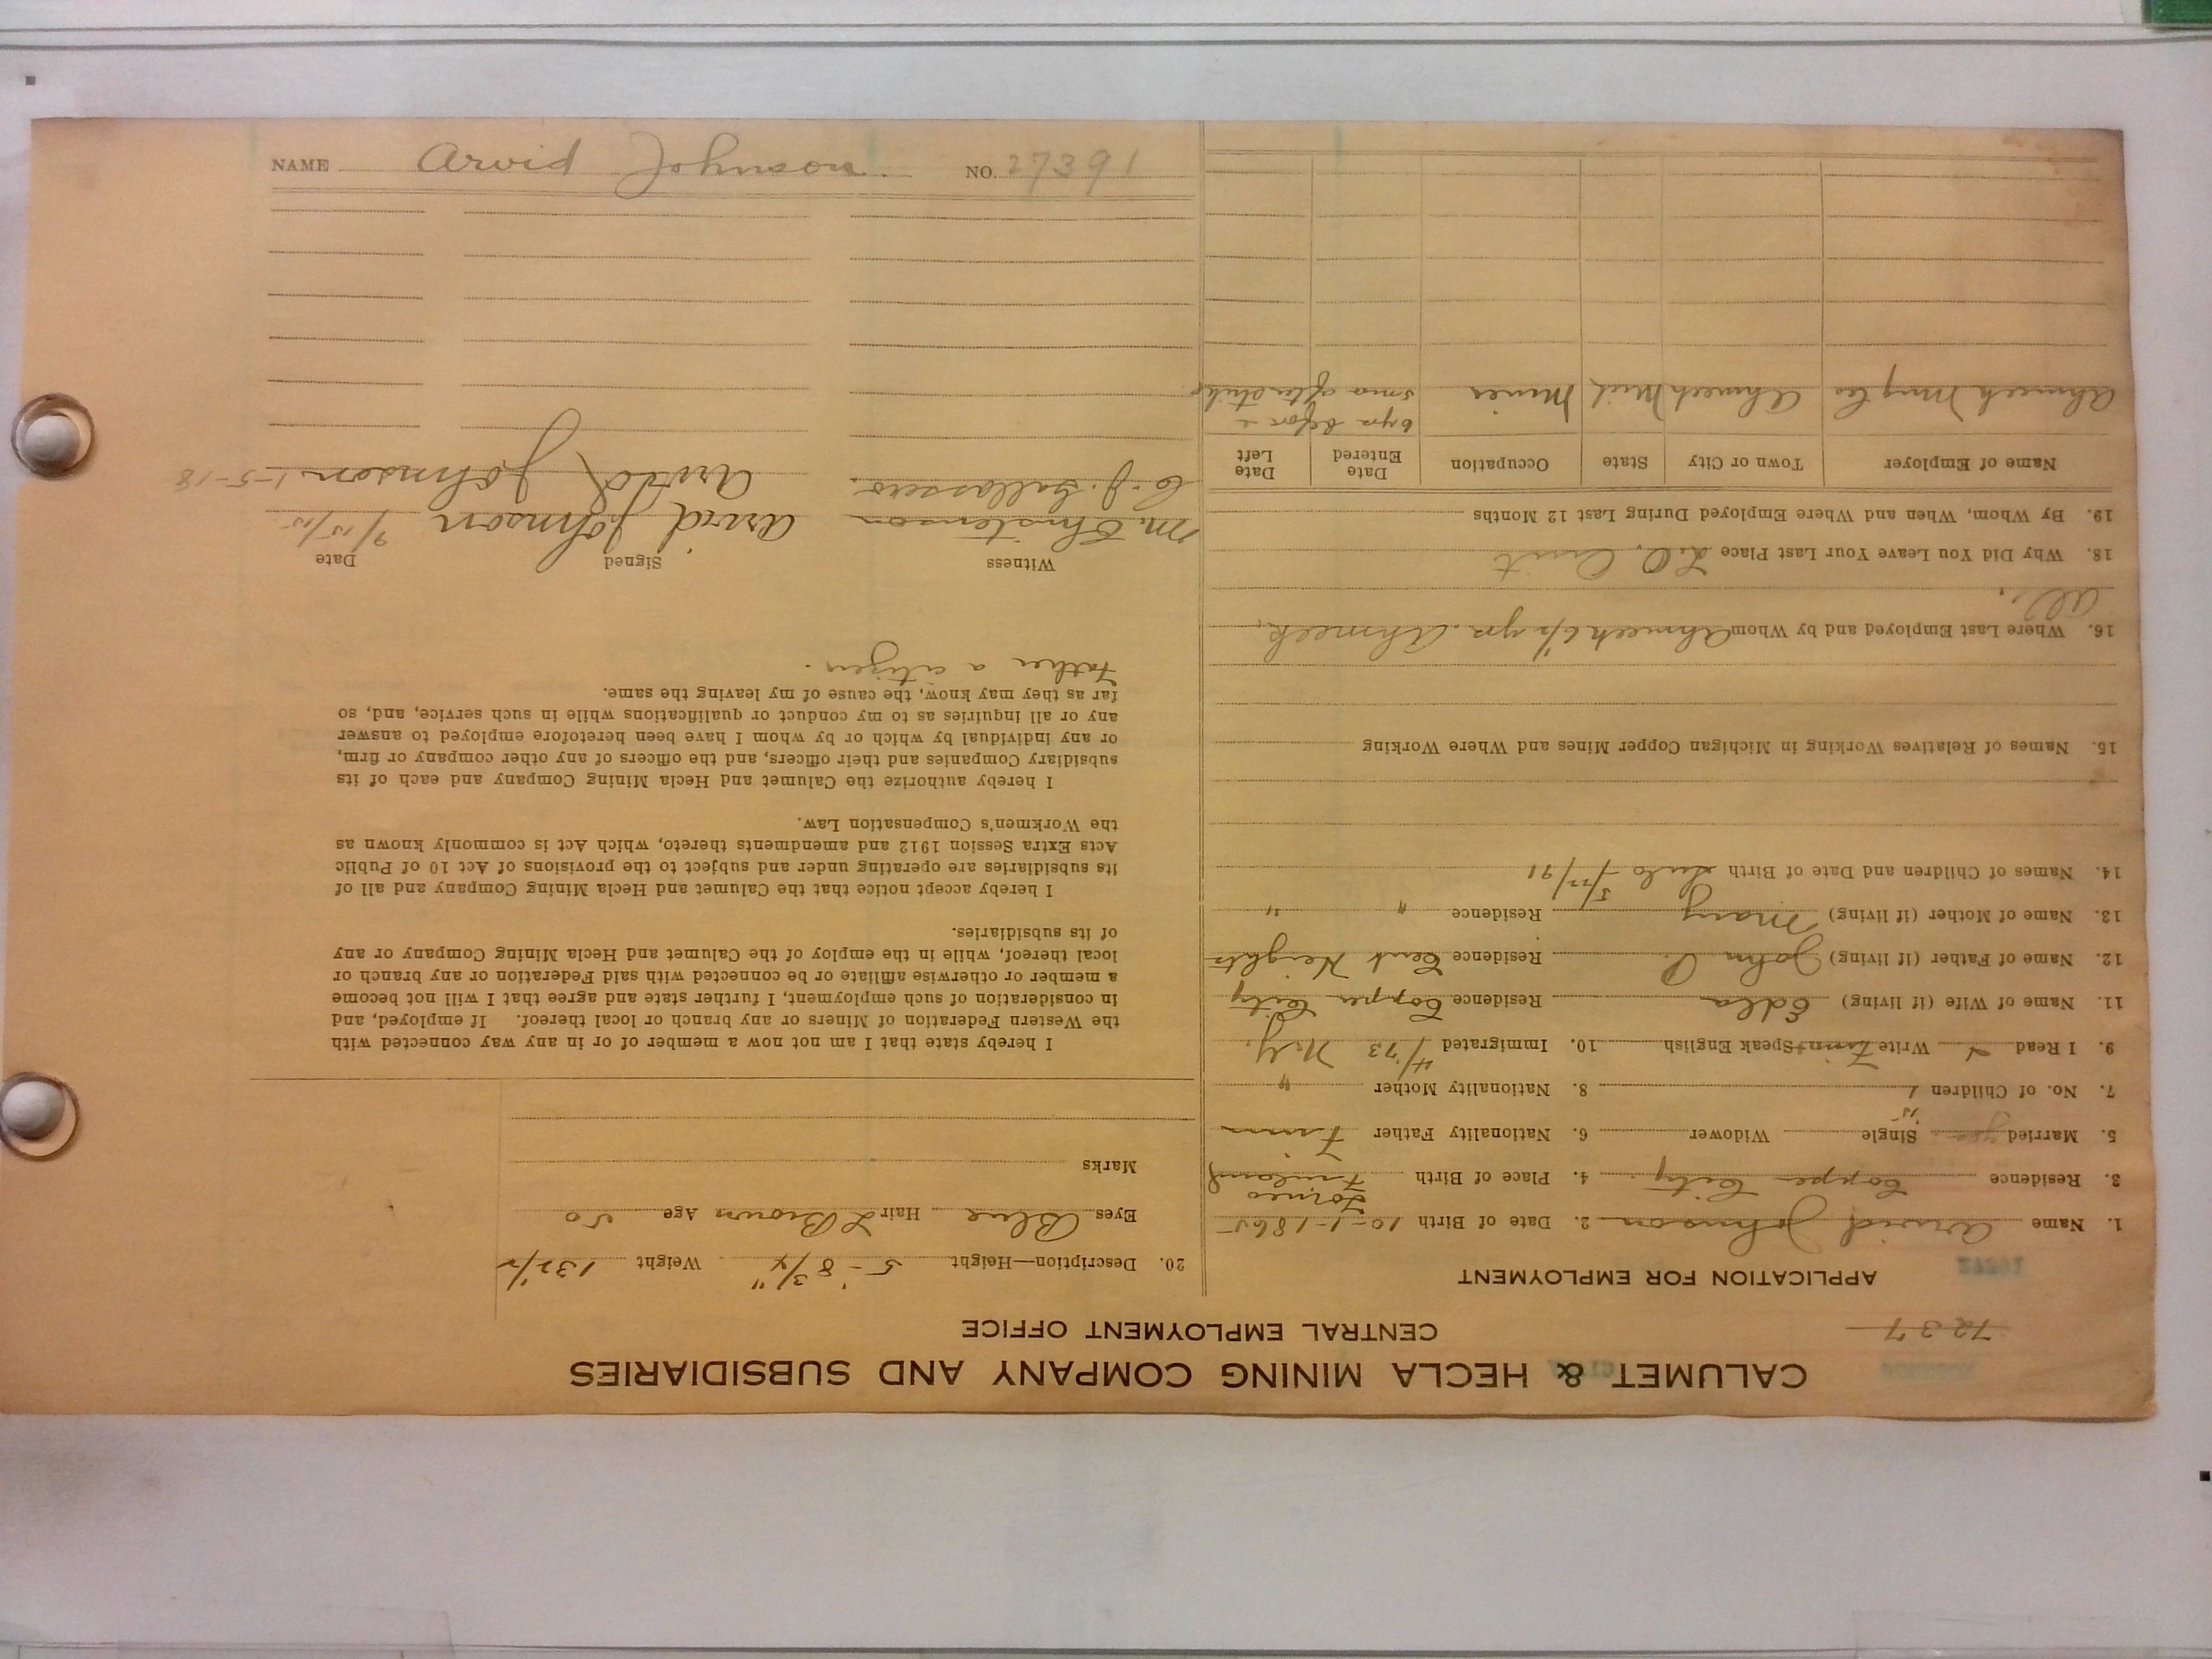 CALUMET & HECLA MINING COMPANY AND SUBSIDIARIES
7237
CENTRAL EMPLOYMENT OFFICE
APPLICATION FOR EMPLOYMENT
1. Name Arvid Johnson 2. Date of Birth 10-1-1865
3. Residence Copper City. 4. Place of Birth Torneo Finland
5. Married yes Single Widower 6. Nationality Father Finn
7. No. of Children 1 8. Nationality Mother "
9. I Read Write Finn + Speak English 10. Immigrated 4/73 N.Y.
11. Name of Wife (if living) Edla Residence Copper City
12. Name of Father (if living) John P. Residence Cent Heights
13. Name of Mother (if living) Mary Residence " "
14. Names of Children and Date of Birth 5/22/91
15. Names of Relatives Working in Michigan Copper Mines and Where Working
16. Where Last Employed and by Whom Ahmeek 6½ yrs. Ahmeek,
18. Why Did You Leave Your Last Place
19. By Whom, When and Where Employed During Last 12 Months
Name of Employer Town or City State Occupation Date Entered Date Left
Ahmeek Mng Co Ahmeek Mich Miner 6 yrs before
5 mo after strike
20. Description—Height 5'-8 3/4" Weight 132½
Eyes Blue Hair L Brown Age 50
Marks
I hereby state that I am not now a member of or in any way connected with
the Western Federation of Miners or any branch or local thereof. If employed, and
in consideration of such employment, I further state and agree that I will not become
a member or otherwise affiliate or be connected with said Federation or any branch or
local thereof, while in the employ of the Calumet and Hecla Mining Company or any
of its subsidiaries.
I hereby accept notice that the Calumet and Hecla Mining Company and all of
its subsidiaries are operating under and subject to the provisions of Act 10 of Public
Acts Extra Session 1912 and amendments thereto, which Act is commonly known as
the Workmen's Compensation Law.
I hereby authorize the Calumet and Hecla Mining Company and each of its
subsidiary Companies and their officers, and the officers of any other company or firm,
or any individual by which or by whom I have been heretofore employed to answer
any or all inquiries as to my conduct or qualifications while in such service, and, so
far as they may know, the cause of my leaving the same.
Father a citizen.
Witness Signed Date
M. Christenson Arvid Johnson 9/15/15
C. J. Arvid Johnson 1-5-18
NAME Arvid Johnson NO. 27391